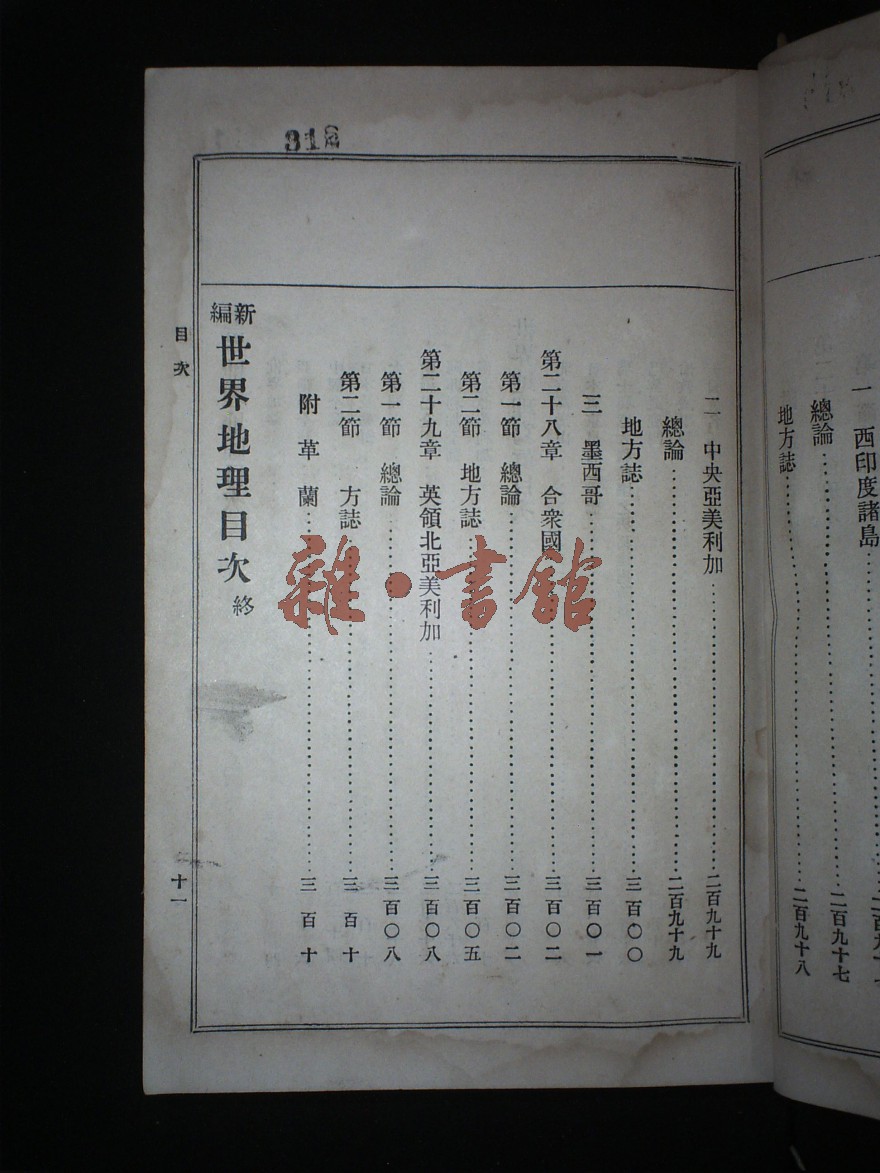 一 西印度諸島
總論 二百九十七
地方誌 二百九十八
318
二 中央亞美利加 二百九十九
總論 二百九十九
地方誌 三百〇〇
三 墨西哥 三百〇一
第二十八章 合衆國 三百〇二
第一節 總論 三百〇二
第二節 地方誌 三百〇五
第二十九章 英領北亞美利加 三百〇八
第一節 總論 三百〇八
第二節 方誌 三百十
附 革蘭 三百十
新編世界地理目次 終
目次 十一
雜·書館